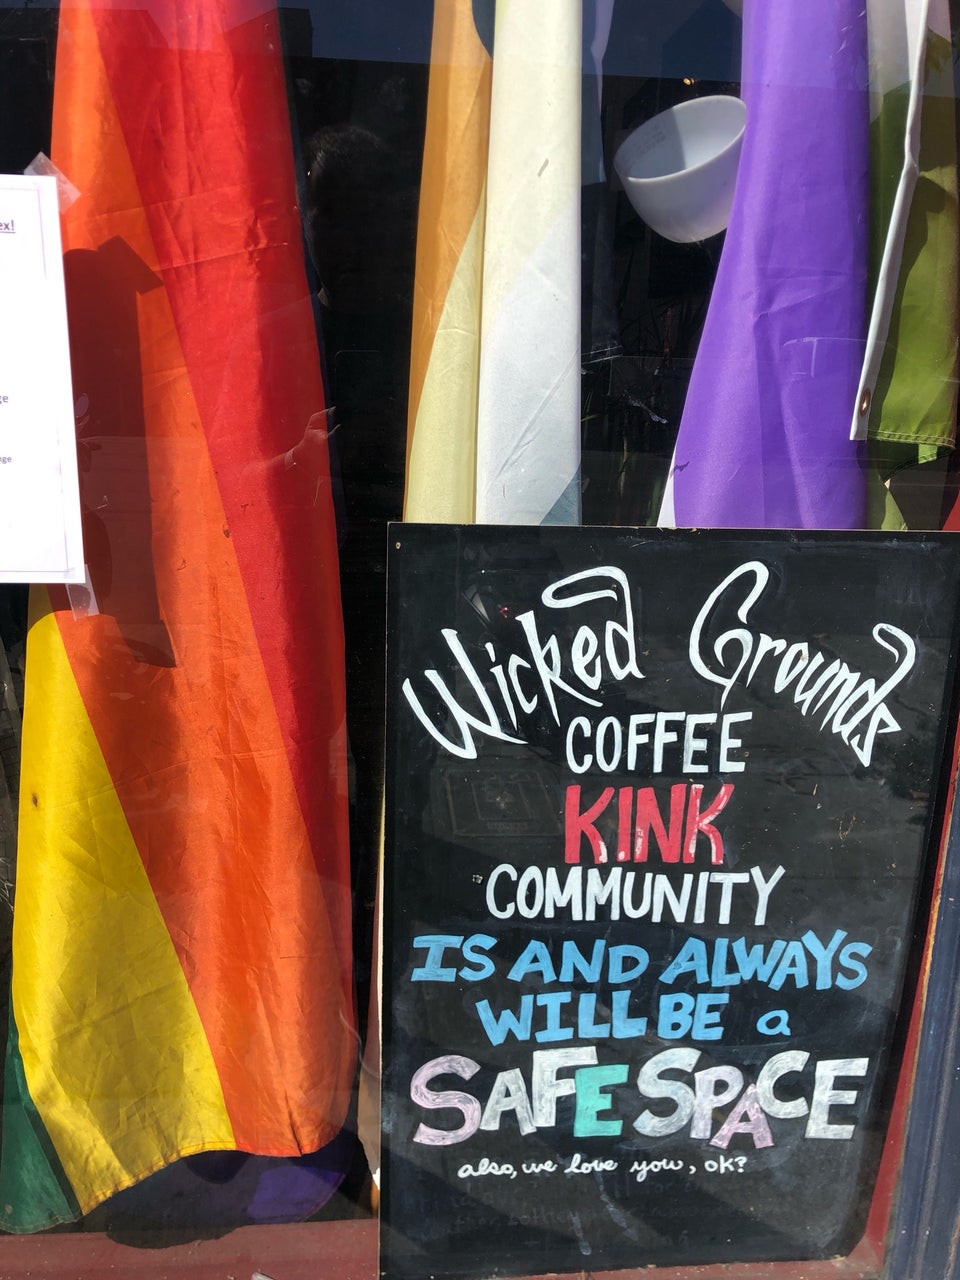 ex!
ge
nge
Wicked Grounds
COFFEE
KINK
COMMUNITY
IS AND ALWAYS
WILL BE a
SAFE SPACE
also, we love you, ok?